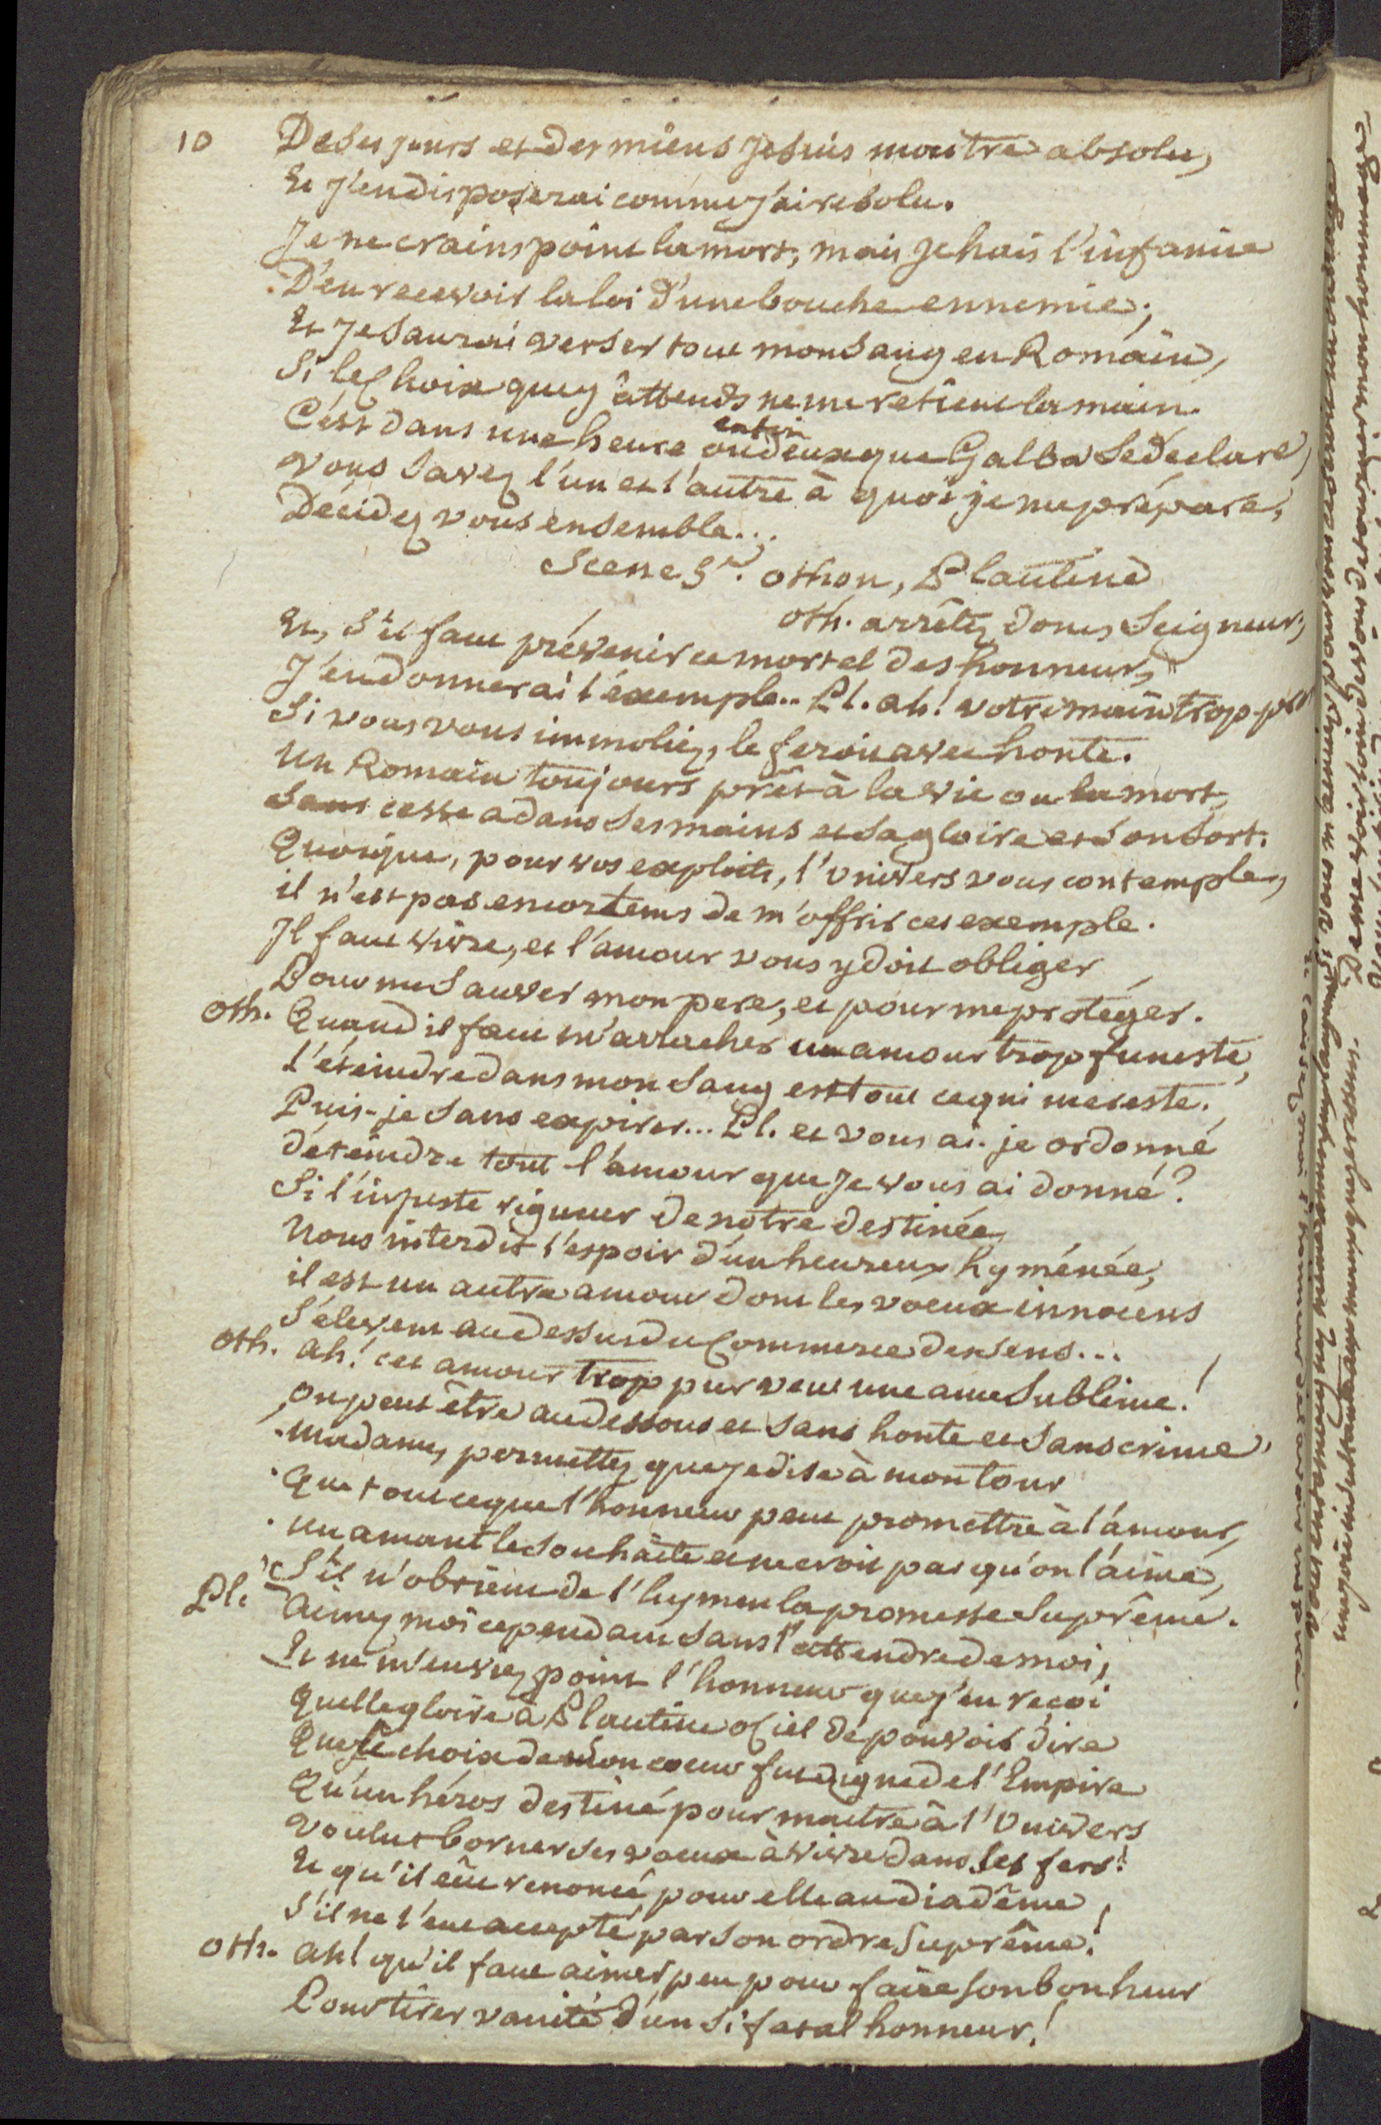 10
De ses jours et des miens je suis maître absolu,
Et j'en disposerai comme j'ai résolu.
Je ne crains point la mort, mais je hais l'infamie
D'en recevoir la loi d'une bouche ennemie;
Et je saurai verser tout mon sang en Romain,
Si le choix que j'attends ne me retient la main.
C'est dans une heure ou deux que Galba se declare,
enfin
vous savez l'un et l'autre à quoi je me prépare,
Décidez vous ensemble...
Scene 5e. othon, Plautine
oth. arrêtez donc, Seigneur,
Et, s'il faut prévenir ce mortel deshonneur,
J'en donnerai l'exemple.. Pl. ah! votre main trop pro
Si vous vous immoliez, le feroit avec honte.
un Romain toujours prêt à la vie ou la mort,
sans cesse a dans ses mains et sa gloire et son sort.
Quoique, pour vos exploits, l'univers vous contemple,
il n'est pas encor tems de m'offrir cet exemple.
Il faut vivre, et l'amour vous y doit obliger
Pour me sauver mon pere, et pour me protéger.
oth. Quand il faut m'arracher un amour trop funeste,
l'éteindre dans mon sang est tout ce qui me reste.
Puis-je sans expirer... Pl. et vous ai-je ordonné
d'éteindre tout l'amour que je vous ai donné?
Si l'injuste rigueur de notre destinée
Nous interdit l'espoir d'un heureux hyménée,
il est un autre amour dont les voeux innocens
S'élevent au dessus du Commerce des sens...
oth. ah! cet amour trop pur veut une ame sublime!
on peut être au dessous et sans honte et sans crime
madame, permettez que je dise à mon tour
Que tout ce que l'honneur peut promettre à l'amour,
un amant le souhaite et ne croit pas qu'on l'aime,
S'il n'obtient de l'hymen la promesse suprême.
Pl. aimez moi cependant sans l'attendre de moi,
Et ne m'enviez point l'honneur que j'en reçoi
quelle gloire à Plautine o Ciel de pouvoir dire
Que le choix de mon coeur fut digne de l'Empire
Qu'un héros destiné pour maître à l'Univers
voulut borner ses voeux à vivre dans ses fers!
Et qu'il eût renoncé pour elle au diadême,
s'il ne l'eut accepté par son ordre suprême!
oth. ah! qu'il faut aimer peu pour faire son bonheur
Pour tirer vanité d'un si fatal honneur!